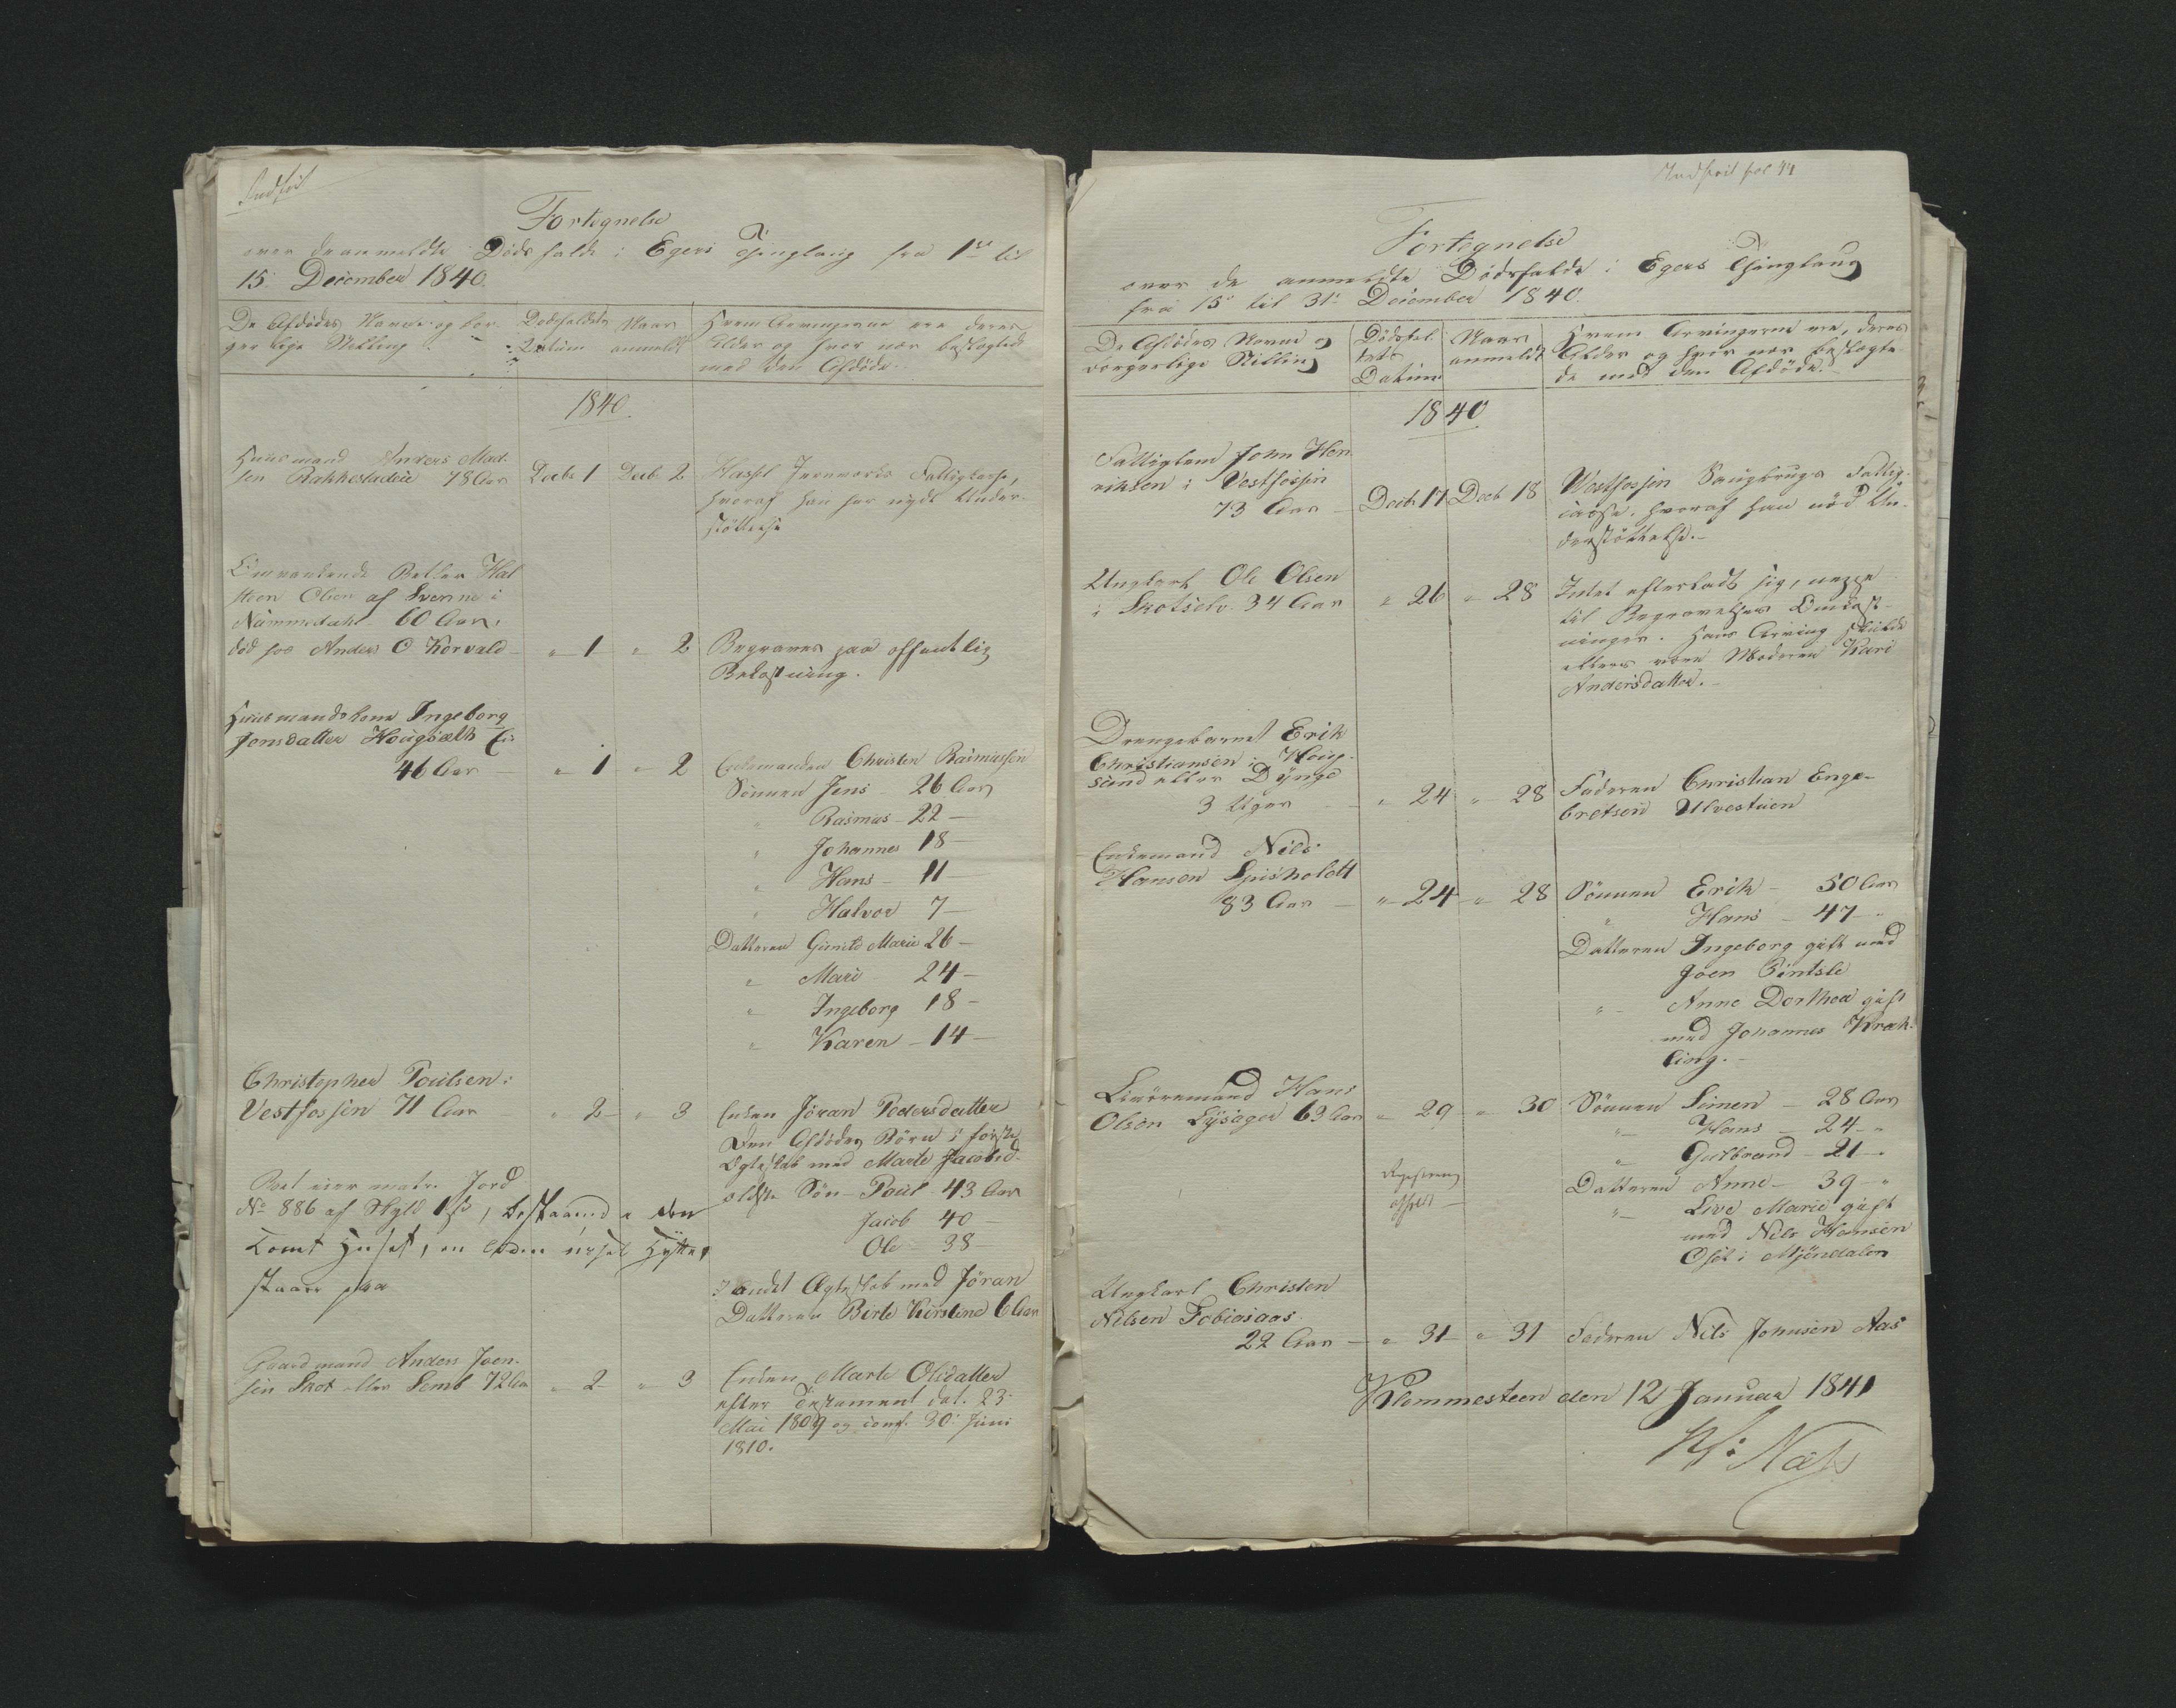 Indført
Fortegnelse
over de anmeldte Dødsfalde i Egers Thinglaug fra 1ste til
15. December 1840.
De Afdødes Navne og bor-
gerlige Stilling
Dødsfaldets
Datum
Naar
anmeldt
Hvem Arvingerne ere deres
Alder og hvor nær beslægted
med den Afdøde.
1840.
Huusmand Anders Mad-
sen Rakkestadeie 78 Aar
Decbr 1
Decb. 2
Hassel Jernværks Fattigkasse,
hvoraf han har nydt Under-
støttelse
Omvankende Betler Hal
steen Olsen af Svenne i
Nummedahl 60 Aar,
død hos Anders O Korvald
" 1 " 2
Begraves paa offentlig
Bekostning.
Huusmandskone Ingeborg
Jensdatter Hougsæth Ei:
46 Aar — " 1 " 2
Enkemanden Christen Rasmussen
Sønnen Jens - 26 Aar
" Rasmus - 22 —
" Johannes 18 —
" Hans - 11 —
" Halvor 7 —
Datteren Gunild Marie 26 —
" Mari 24 —
" Ingeborg 18 —
" Karen - 14 —
Christopher Poulsen i
Vestfossen 71 Aar " 2 " 3
Enken Jöran Pedersdatter
Den Afdødes Børn i første
Ægteskab med Marte Jacobsd.
ældste Søn - Poul - 43 Aar
Jacob 40 —
Ole - 38 —
i andet Ægteskab med Jöran
Datteren Berte Kirstine 6 Aar
matr. Jord
No 886 af Skyld 1 ß, bestaaende den
Tomt Huset, en Hytte,
staaer paa
Gaardmand Anders Joen-
sen Skot eller Semb 72 Aar " 2 " 3
Enken Marte Olsdatter
efter Testament dat. 23.
Mai 1809 og conf. 30. Juni
1810.
Indført fol 44
Fortegnelse
over de anmeldte Dødsfalde i Egers Thinglaug
fra 15. til 31. December 1840.
De Afdødes Navne og
borgerlige Stilling
Dødsfal-
dets
Datum
Naar
anmeldt
Hvem Arvingerne ere, deres
Alder og hvor nær beslægte-
de med den Afdøde.
1840
Fattiglem John Hen-
riksen i Vestfossen
73 Aar
Decbr 17
Decb 18
Westfossen Saugbrugs Fattig-
casse, hvoraf han nød Un-
derstøttelse. —
Ungkarl Ole Olsen
i Skotselv. 34 Aar " 26 " 28
Intet efterladt sig, neppe
til Begravelses Omkost-
ninger. Hans Arving skulde
ellers være Moderen Kari
Andersdatter. —
Drengebarnet Erik
Christiansen i Houg-
sund eller Dynge
3 Uger — " 24 " 28
Faderen Christian Enge-
bretsen Ulvestuen
Enkemand Nils
Hansen Spisholdt
83 Aar — " 24 " 28
Sønnen Erik - 50 Aar
" Hans - 47 "
Datteren Ingeborg gift med
Joen Sintsle
" Anne Dorthea gift
med Johannes Kræk-
ling. —
Livøremand Hans
Olsen Lysager 63 Aar " 29 " 30
Sønnen Simen - 28 Aar
" Hans - 24 - "
" Gulbrand - 21 - "
Datteren Anne - 39 - "
" Live Marie gift
med Nils Hansen
Oset i Mjöndalen
Registrering
afholdt —
Ungkarl Christen
Nilsen Tobiasaas
22 Aar — " 31 " 31
Faderen Nils Johnsen Aas
Klommesteen den 12 Januar 1841